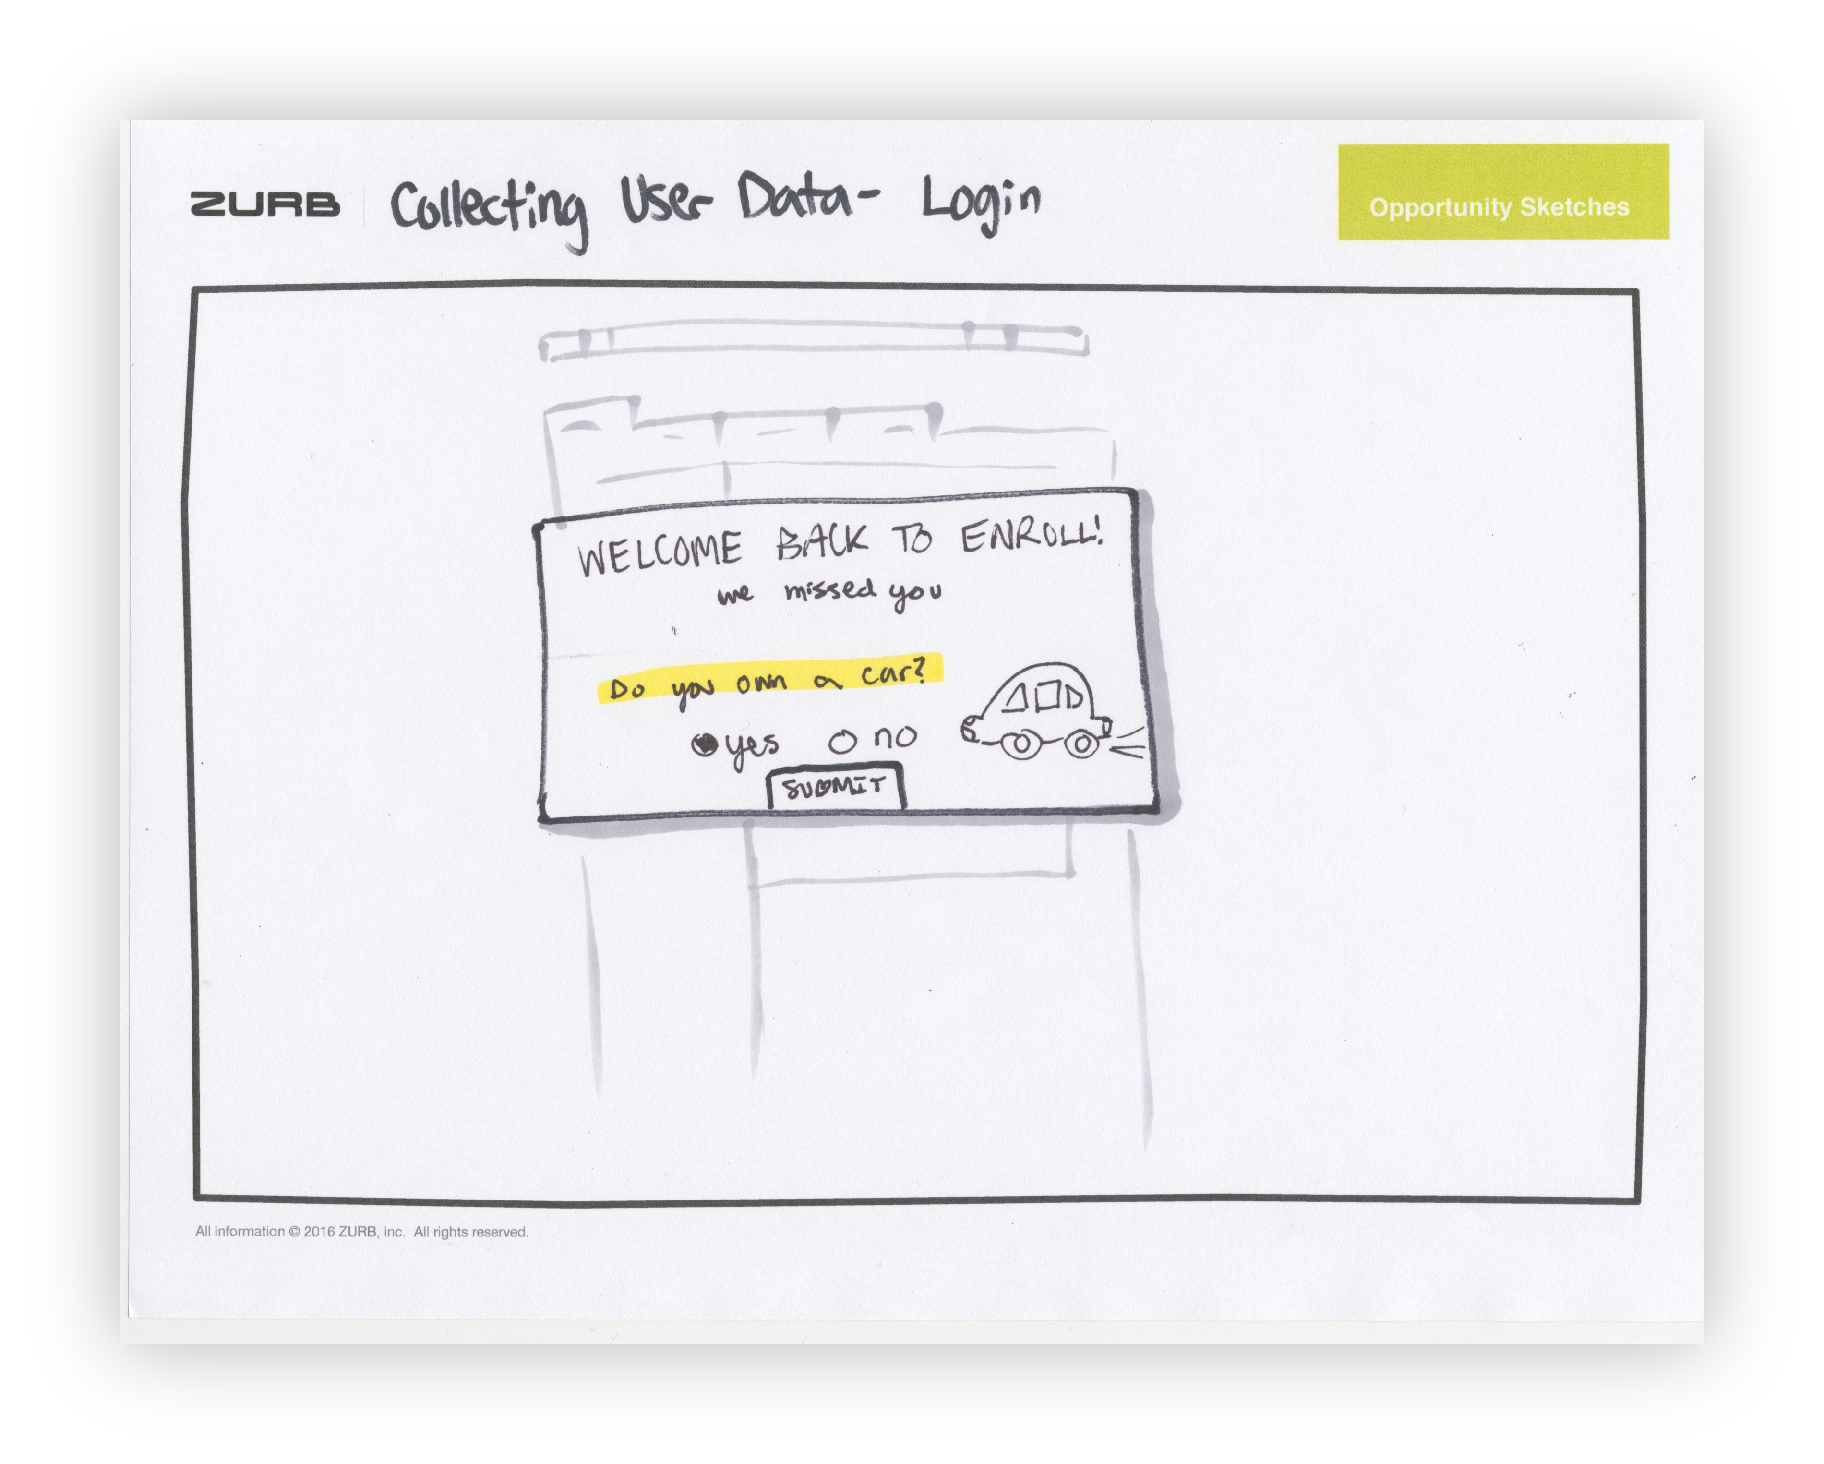 ZURB Collecting User Data- Login
Opportunity Sketches
WELCOME BACK TO ENROLL!
we missed you
Do you own a car?
yes no
SUBMIT
All information © 2016 ZURB, inc. All rights reserved.